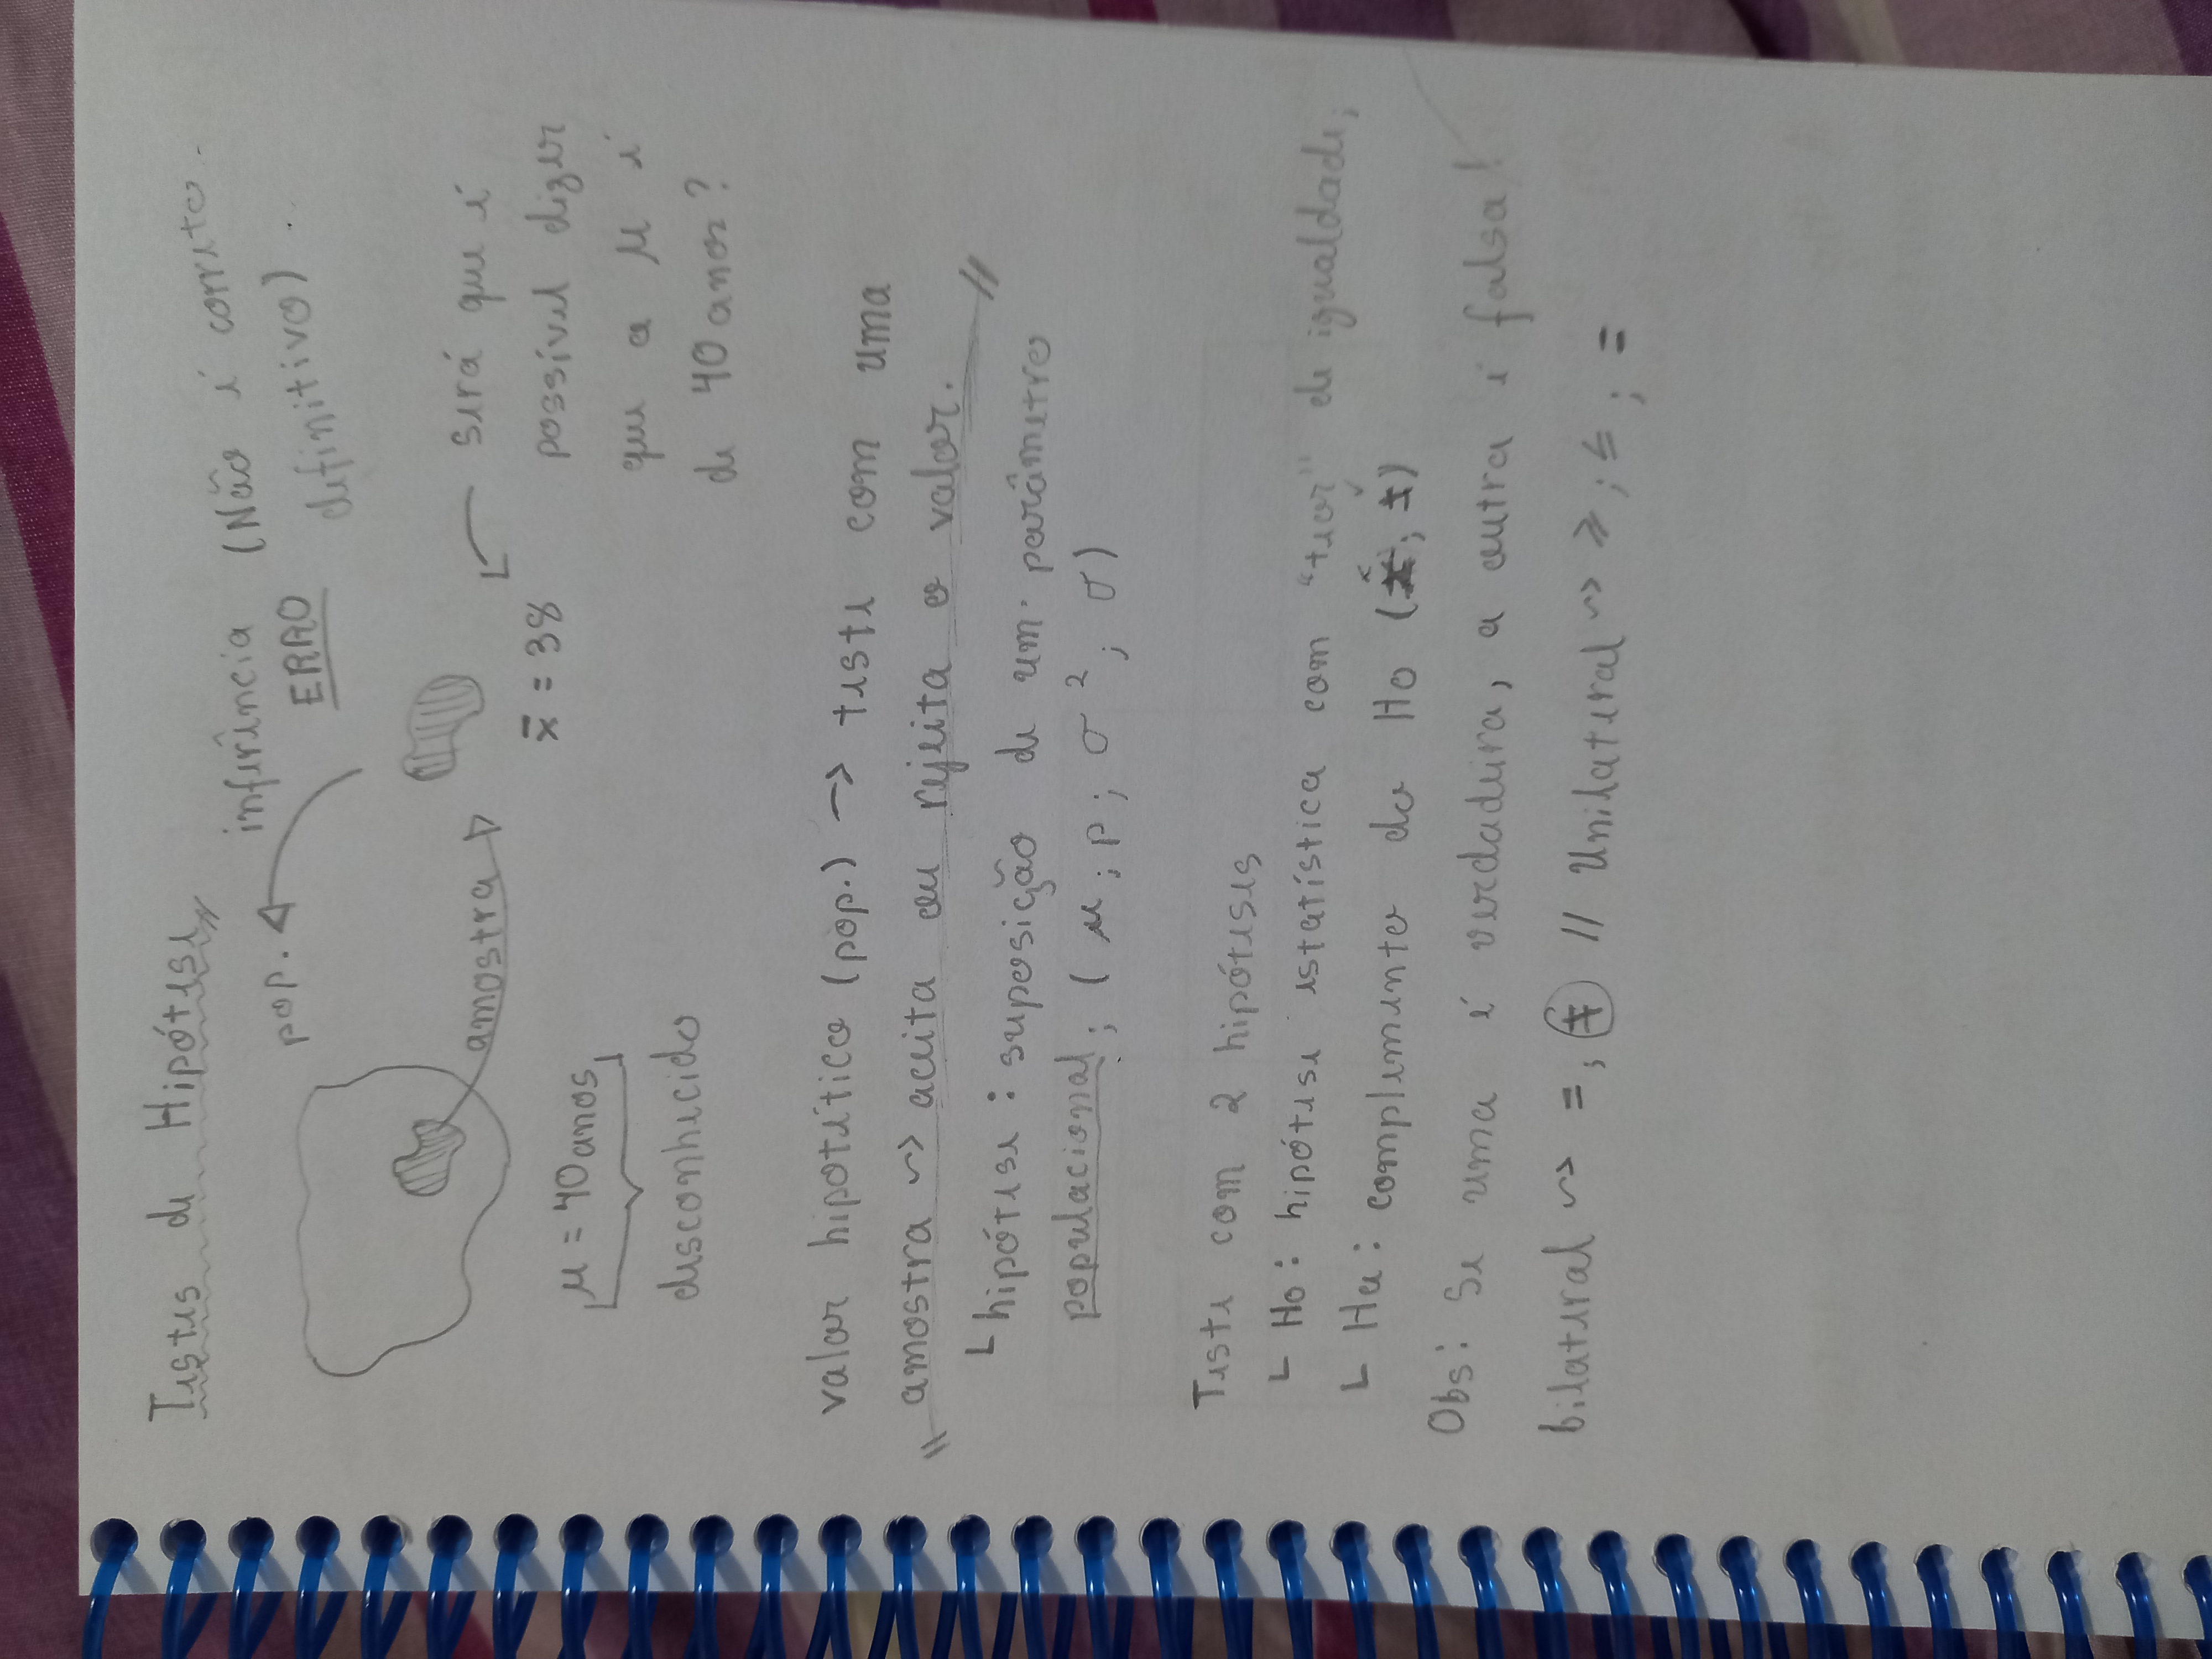 Testes de Hipótese
inferência (Não é correto
pop. ERRO definitivo)
amostra
será que é
x̄ = 38 possível dizer
μ = 40 anos que a μ é
desconhecido de 40 anos?
valor hipotético (pop.) → teste com uma
amostra ⇝ aceita ou rejeita o valor.
hipótese : suposição de um parâmetro
populacional; (μ; p; σ²; σ)
Teste com 2 hipóteses
Ho: hipótese estatística com "teor" de igualdade;
Ha: complemento da Ho
Obs: Se uma é verdadeira, a outra é falsa!
bilateral ⇝ =, ≠ // Unilateral ⇝ ≥; ≤; =